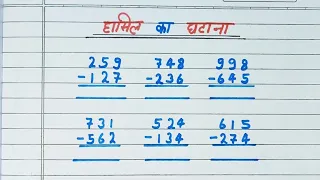 हासिल का घटाना
259 748 998
-127 -236 -645
731 524 615
-562 -134 -274